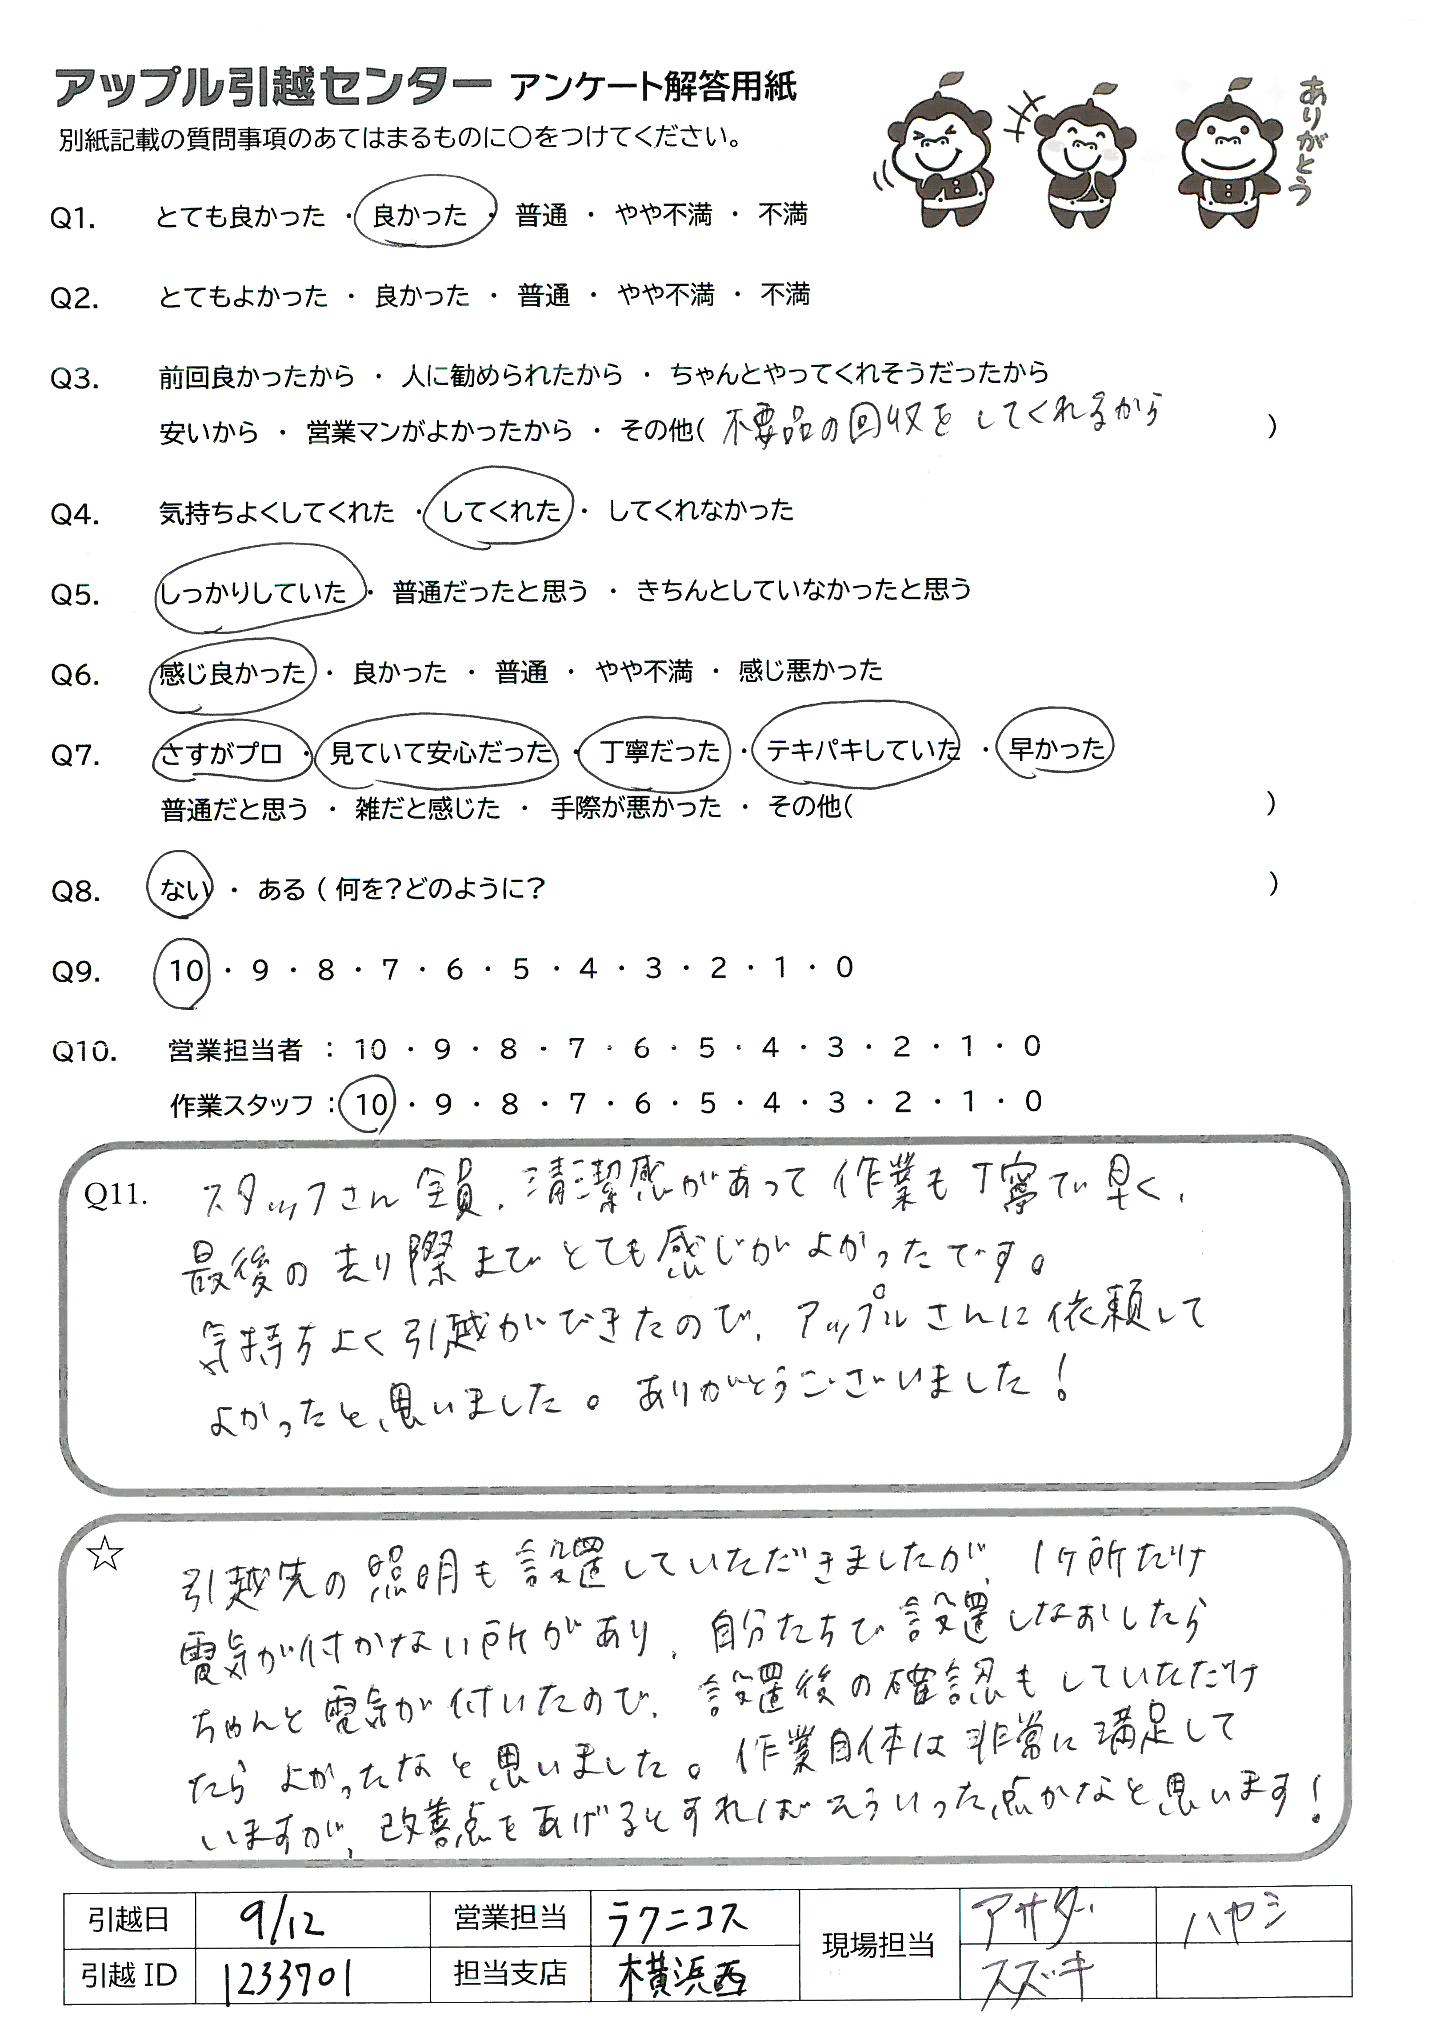 アップル引越センター アンケート解答用紙
ありがとう
別紙記載の質問事項のあてはまるものに○をつけてください。
Q1. とても良かった ・ 良かった ・ 普通 ・ やや不満 ・ 不満
Q2. とてもよかった ・ 良かった ・ 普通 ・ やや不満 ・ 不満
Q3. 前回良かったから ・ 人に勧められたから ・ ちゃんとやってくれそうだったから
安いから ・ 営業マンがよかったから ・ その他( 不要品の回収をしてくれるから )
Q4. 気持ちよくしてくれた ・ してくれた ・ してくれなかった
Q5. しっかりしていた ・ 普通だったと思う ・ きちんとしていなかったと思う
Q6. 感じ良かった ・ 良かった ・ 普通 ・ やや不満 ・ 感じ悪かった
Q7. さすがプロ ・ 見ていて安心だった ・ 丁寧だった ・ テキパキしていた ・ 早かった
普通だと思う ・ 雑だと感じた ・ 手際が悪かった ・ その他( )
Q8. ない ・ ある ( 何を?どのように? )
Q9. 10 ・ 9 ・ 8 ・ 7 ・ 6 ・ 5 ・ 4 ・ 3 ・ 2 ・ 1 ・ 0
Q10. 営業担当者 : 10 ・ 9 ・ 8 ・ 7 ・ 6 ・ 5 ・ 4 ・ 3 ・ 2 ・ 1 ・ 0
作業スタッフ : 10 ・ 9 ・ 8 ・ 7 ・ 6 ・ 5 ・ 4 ・ 3 ・ 2 ・ 1 ・ 0
Q11. スタッフさん全員、清潔感があって作業も丁寧で早く、
最後の去り際までとても感じがよかったです。
気持ちよく引越ができたので、アップルさんに依頼して
よかったと思いました。ありがとうございました!
☆ 引越先の照明も設置していただきましたが、1ヶ所だけ
電気が付かない所があり、自分たちで設置しなおしたら
ちゃんと電気が付いたので、設置後の確認もしていただけ
たらよかったなと思いました。作業自体は非常に満足して
いますが、改善点をあげるとすればそういった点かなと思います!
引越日 9/12 営業担当 ラクニコス 現場担当 アサダ ハヤシ
引越ID 1233701 担当支店 横浜西 スズキ